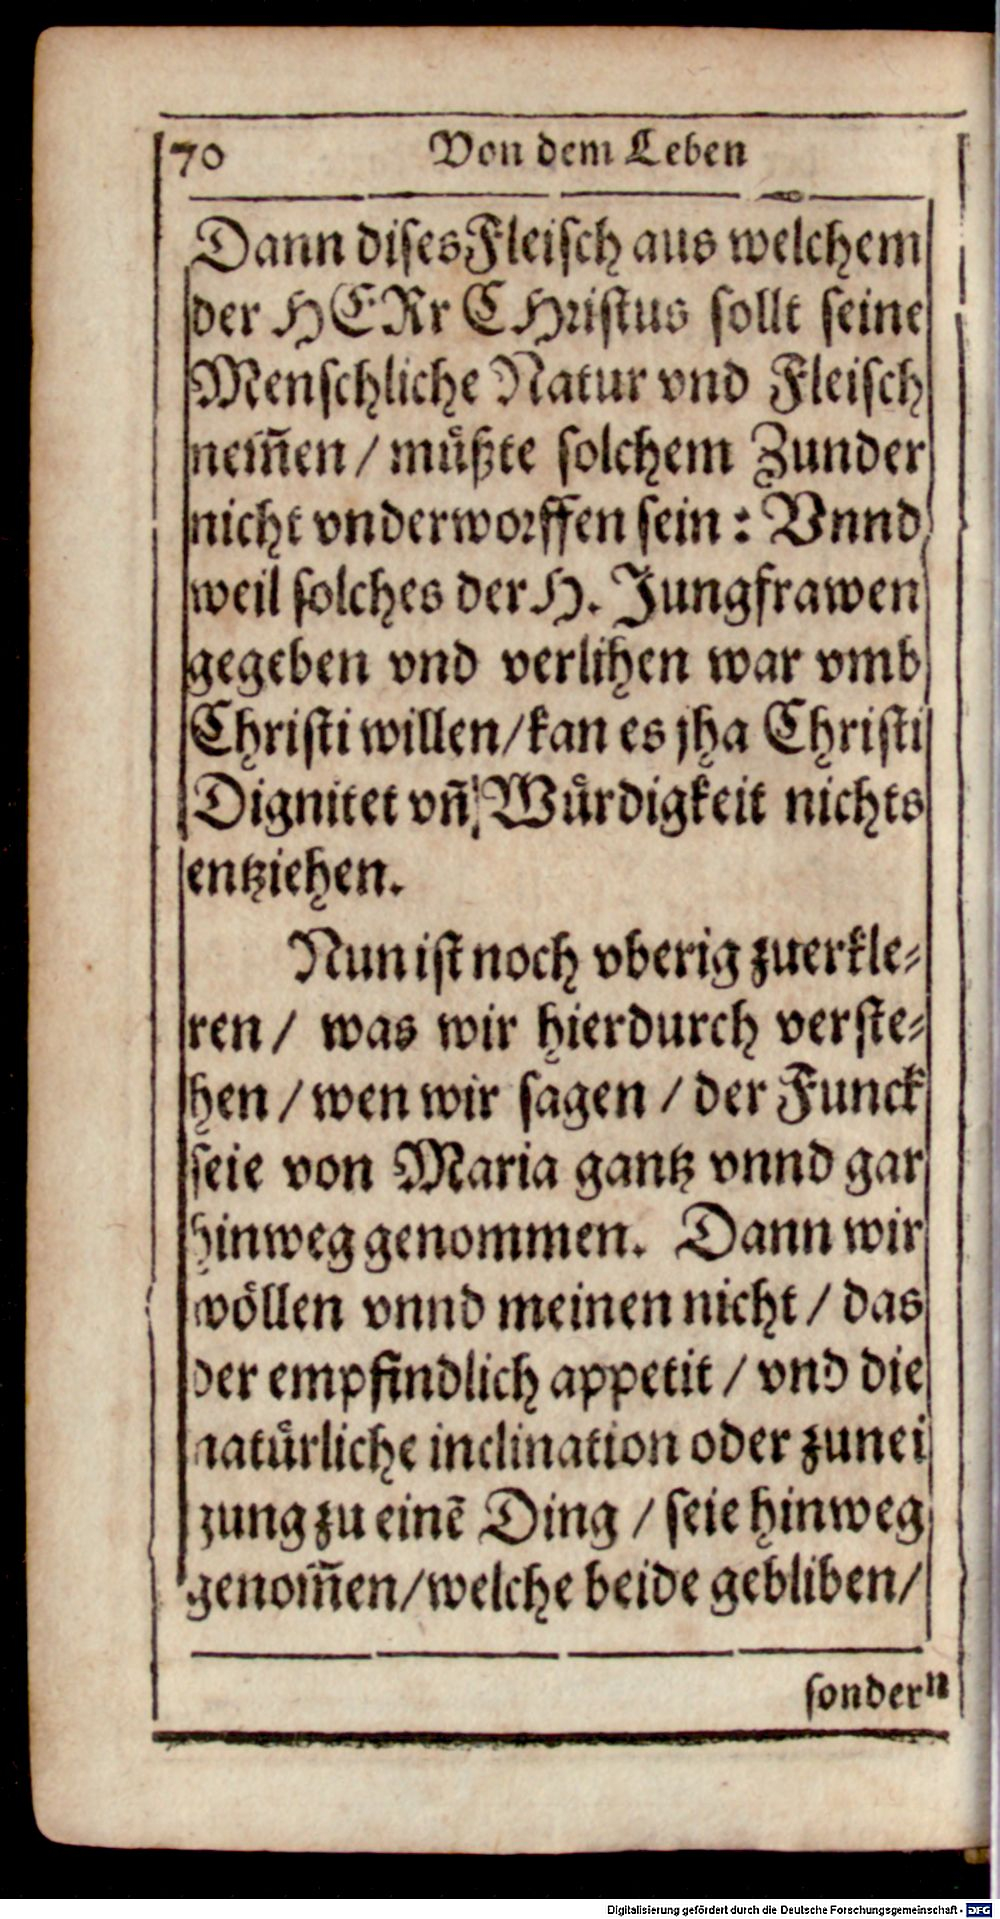 70 Von dem Leben
Dann dises Fleisch aus welchem
der HERr CHristus sollt seine
Menschliche Natur vnd Fleisch
nem̃en / muͤßte solchem Zunder
nicht vnderworffen sein: Vnnd
weil solches der H. Jungfrawen
gegeben vnd verlihen war vmb
Christi willen/kan es jha Christi
Dignitet vñ Wuͤrdigkeit nichts
entziehen.
Nun ist noch vberig zuerkle-
ren / was wir hierdurch verste-
hen / wen wir sagen / der Funck
seie von Maria gantz vnnd gar
hinweg genommen. Dann wir
woͤllen vnnd meinen nicht / das
der empfindlich appetit / vnd die
natuͤrliche inclination oder zunei
gung zu einẽ Ding / seie hinweg
genom̃en/welche beide gebliben/
sondern
Digitalisierung gefördert durch die Deutsche Forschungsgemeinschaft - DFG